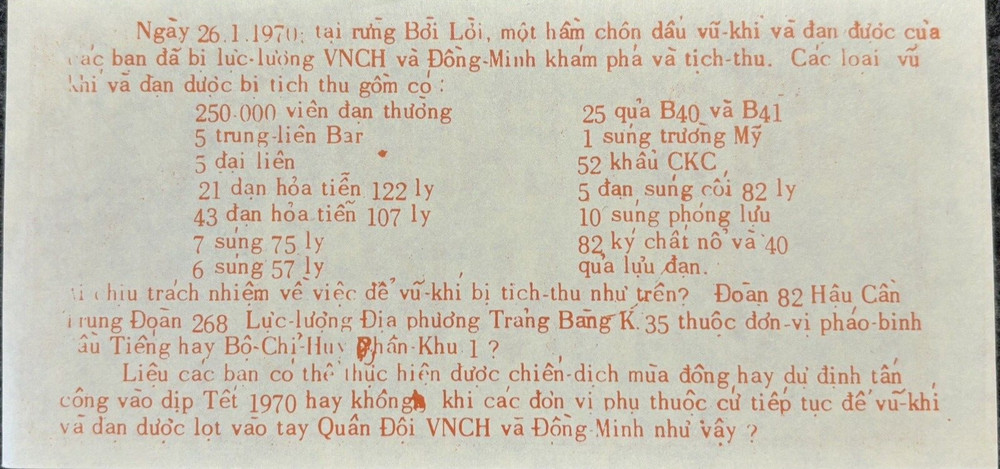 Ngày 26.1.1970; tại rừng Bời Lời, một hầm chôn dấu vũ-khí và đạn dược của
các bạn đã bị lực-lượng VNCH và Đồng-Minh khám phá và tịch-thu. Các loại vũ
khí và đạn dược bị tịch thu gồm có :
250.000 viên đạn thường
25 quả B40 và B41
5 trung-liên Bar
1 súng trường Mỹ
5 đại liên
52 khẩu CKC
21 đạn hỏa tiễn 122 ly
5 đạn súng cối 82 ly
43 đạn hỏa tiễn 107 ly
10 súng phóng lựu
7 súng 75 ly
82 ký chất nổ và 40
6 súng 57 ly
quả lựu đạn.
chịu trách nhiệm về việc để vũ-khí bị tịch-thu như trên? Đoàn 82 Hậu Cần
Trung Đoàn 268 Lực-lượng Địa phương Trảng Bàng K.35 thuộc đơn-vị pháo-binh
ầu Tiếng hay Bộ-Chỉ-Huy Phân-Khu 1 ?
Liệu các bạn có thể thực hiện được chiến-dịch mùa đông hay dự định tấn
công vào dịp Tết 1970 hay không khi các đơn vị phụ thuộc cứ tiếp tục để vũ-khí
và đạn dược lọt vào tay Quân Đội VNCH và Đồng Minh như vậy ?